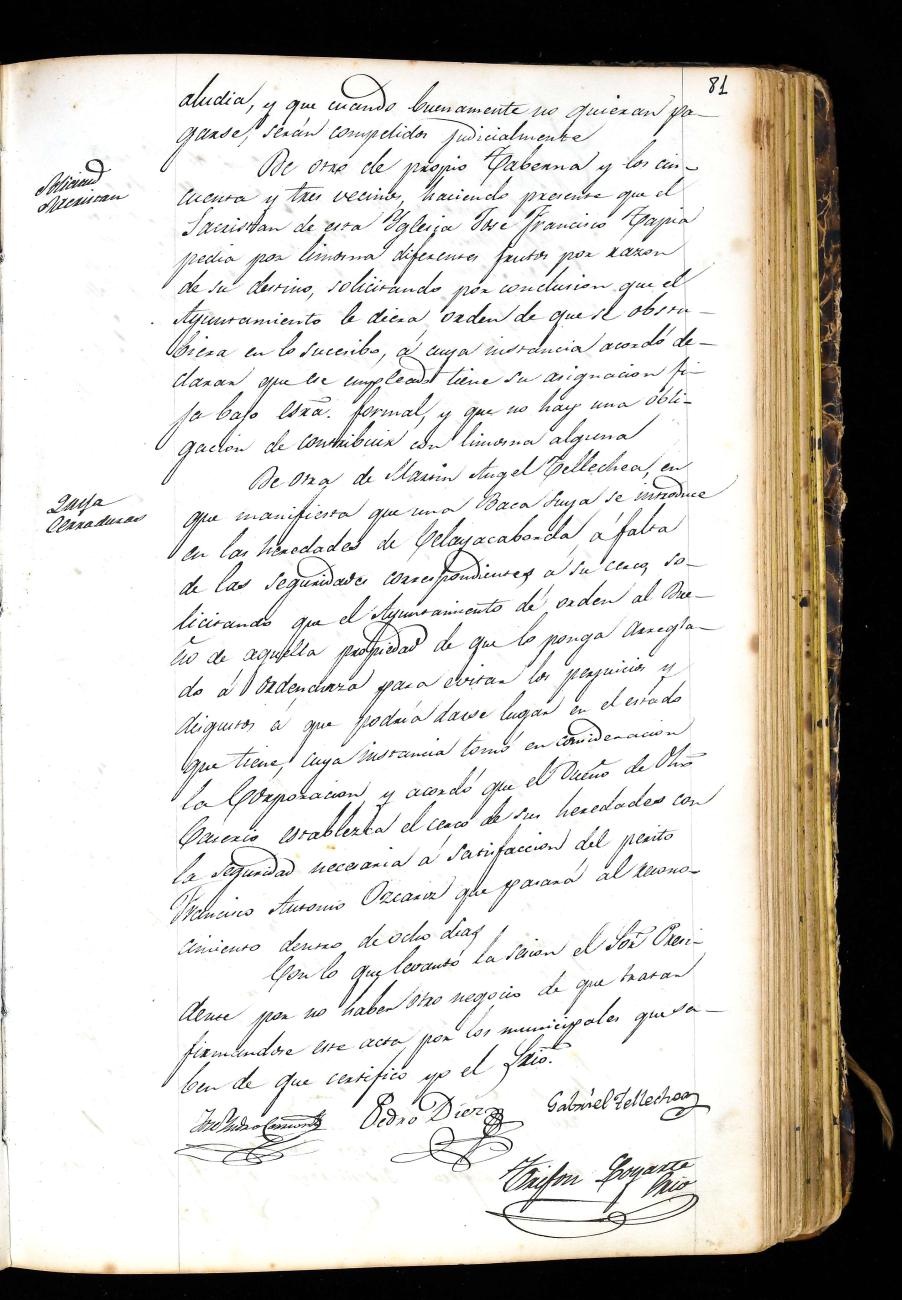 81
aludia, y que cuando buenamente no quieran pa-
garse, serán compelidos judicialmente
De otro de propio Taberna y los cin-
cuenta y tres vecinos, haciendo presente que el
Sacristan de esta Yglesia José Francisco Tapia
pedia por limosna diferentes frutos por razon
de su destino, solicitando por conclusion que el
Ayuntamiento le diera orden de que se obstu-
biera en lo sucesibo, á cuya instancia acordó de-
clarar que ese empleado tiene su asignacion fi-
ja bajo esĩra. formal, y que no hay una obli-
gación de contribuir con limosna alguna
Queja
Cerraduras
De otra de Martin Angel Tellechea, en
que manifiesta que una Baca suya se introduce
en las heredades de Celayacaborda, á falta
de las seguridades correspondientes á su cerco so-
licitando que el Ayuntamiento dé orden al Due-
ño de aquella propiedad de que lo ponga arregla-
do á ordenanza para evitar los perjuicios y
disgustos á que podria darse lugar en el estado
que tiene, cuya instancia tomó en consideracion
la Corporacion y acordó que el Dueño de dho
Caserio establezca el cerco de sus heredades con
la seguridad necesaria á satisfaccion del perito
Francisco Antonio Ozcariz que pasará al recono-
cimiento dentro de ocho dias
Con lo que levantó la sesion el Sor. Presi-
dente por no haber otro negocio de que tratar
firmandose este acta por los municipales que sa-
ben de que certifico yo el Srio.
Pedro Diez
Gabriel Tellechea
Srio